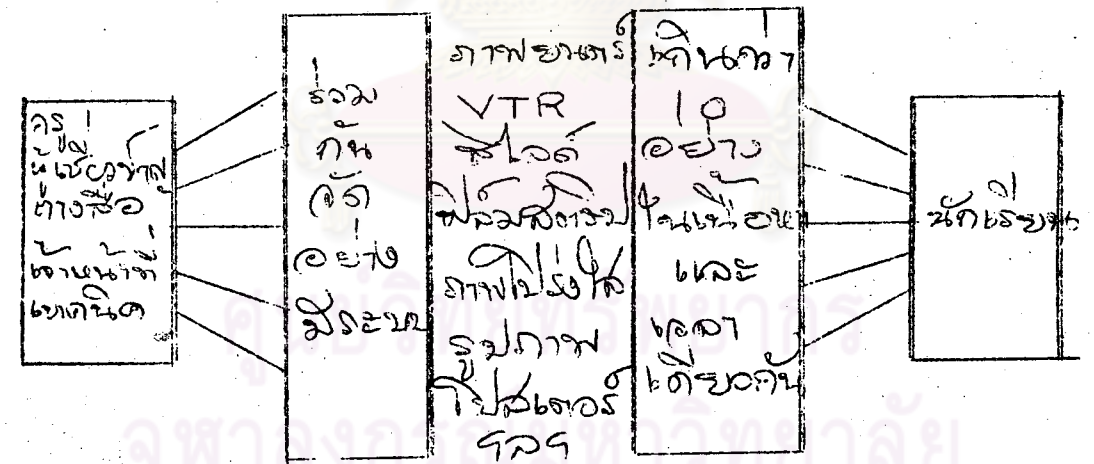 ครู
ผู้เชี่ยวชาญ
ทางสื่อ
เจ้าหน้าที่
เทคนิค
ร่วม
กัน
จัด
อย่าง
มีระบบ
ภาพยนตร์
VTR
สไลด์
ฟิล์มสตริป
ภาพโปร่งใส
รูปภาพ
โปสเตอร์
ฯลฯ
เกินกว่า
10
อย่าง
ในเนื้อหา
และ
เวลา
เดียวกัน
นักเรียน
ศูนย์วิทยทรัพยากร
จุฬาลงกรณ์มหาวิทยาลัย